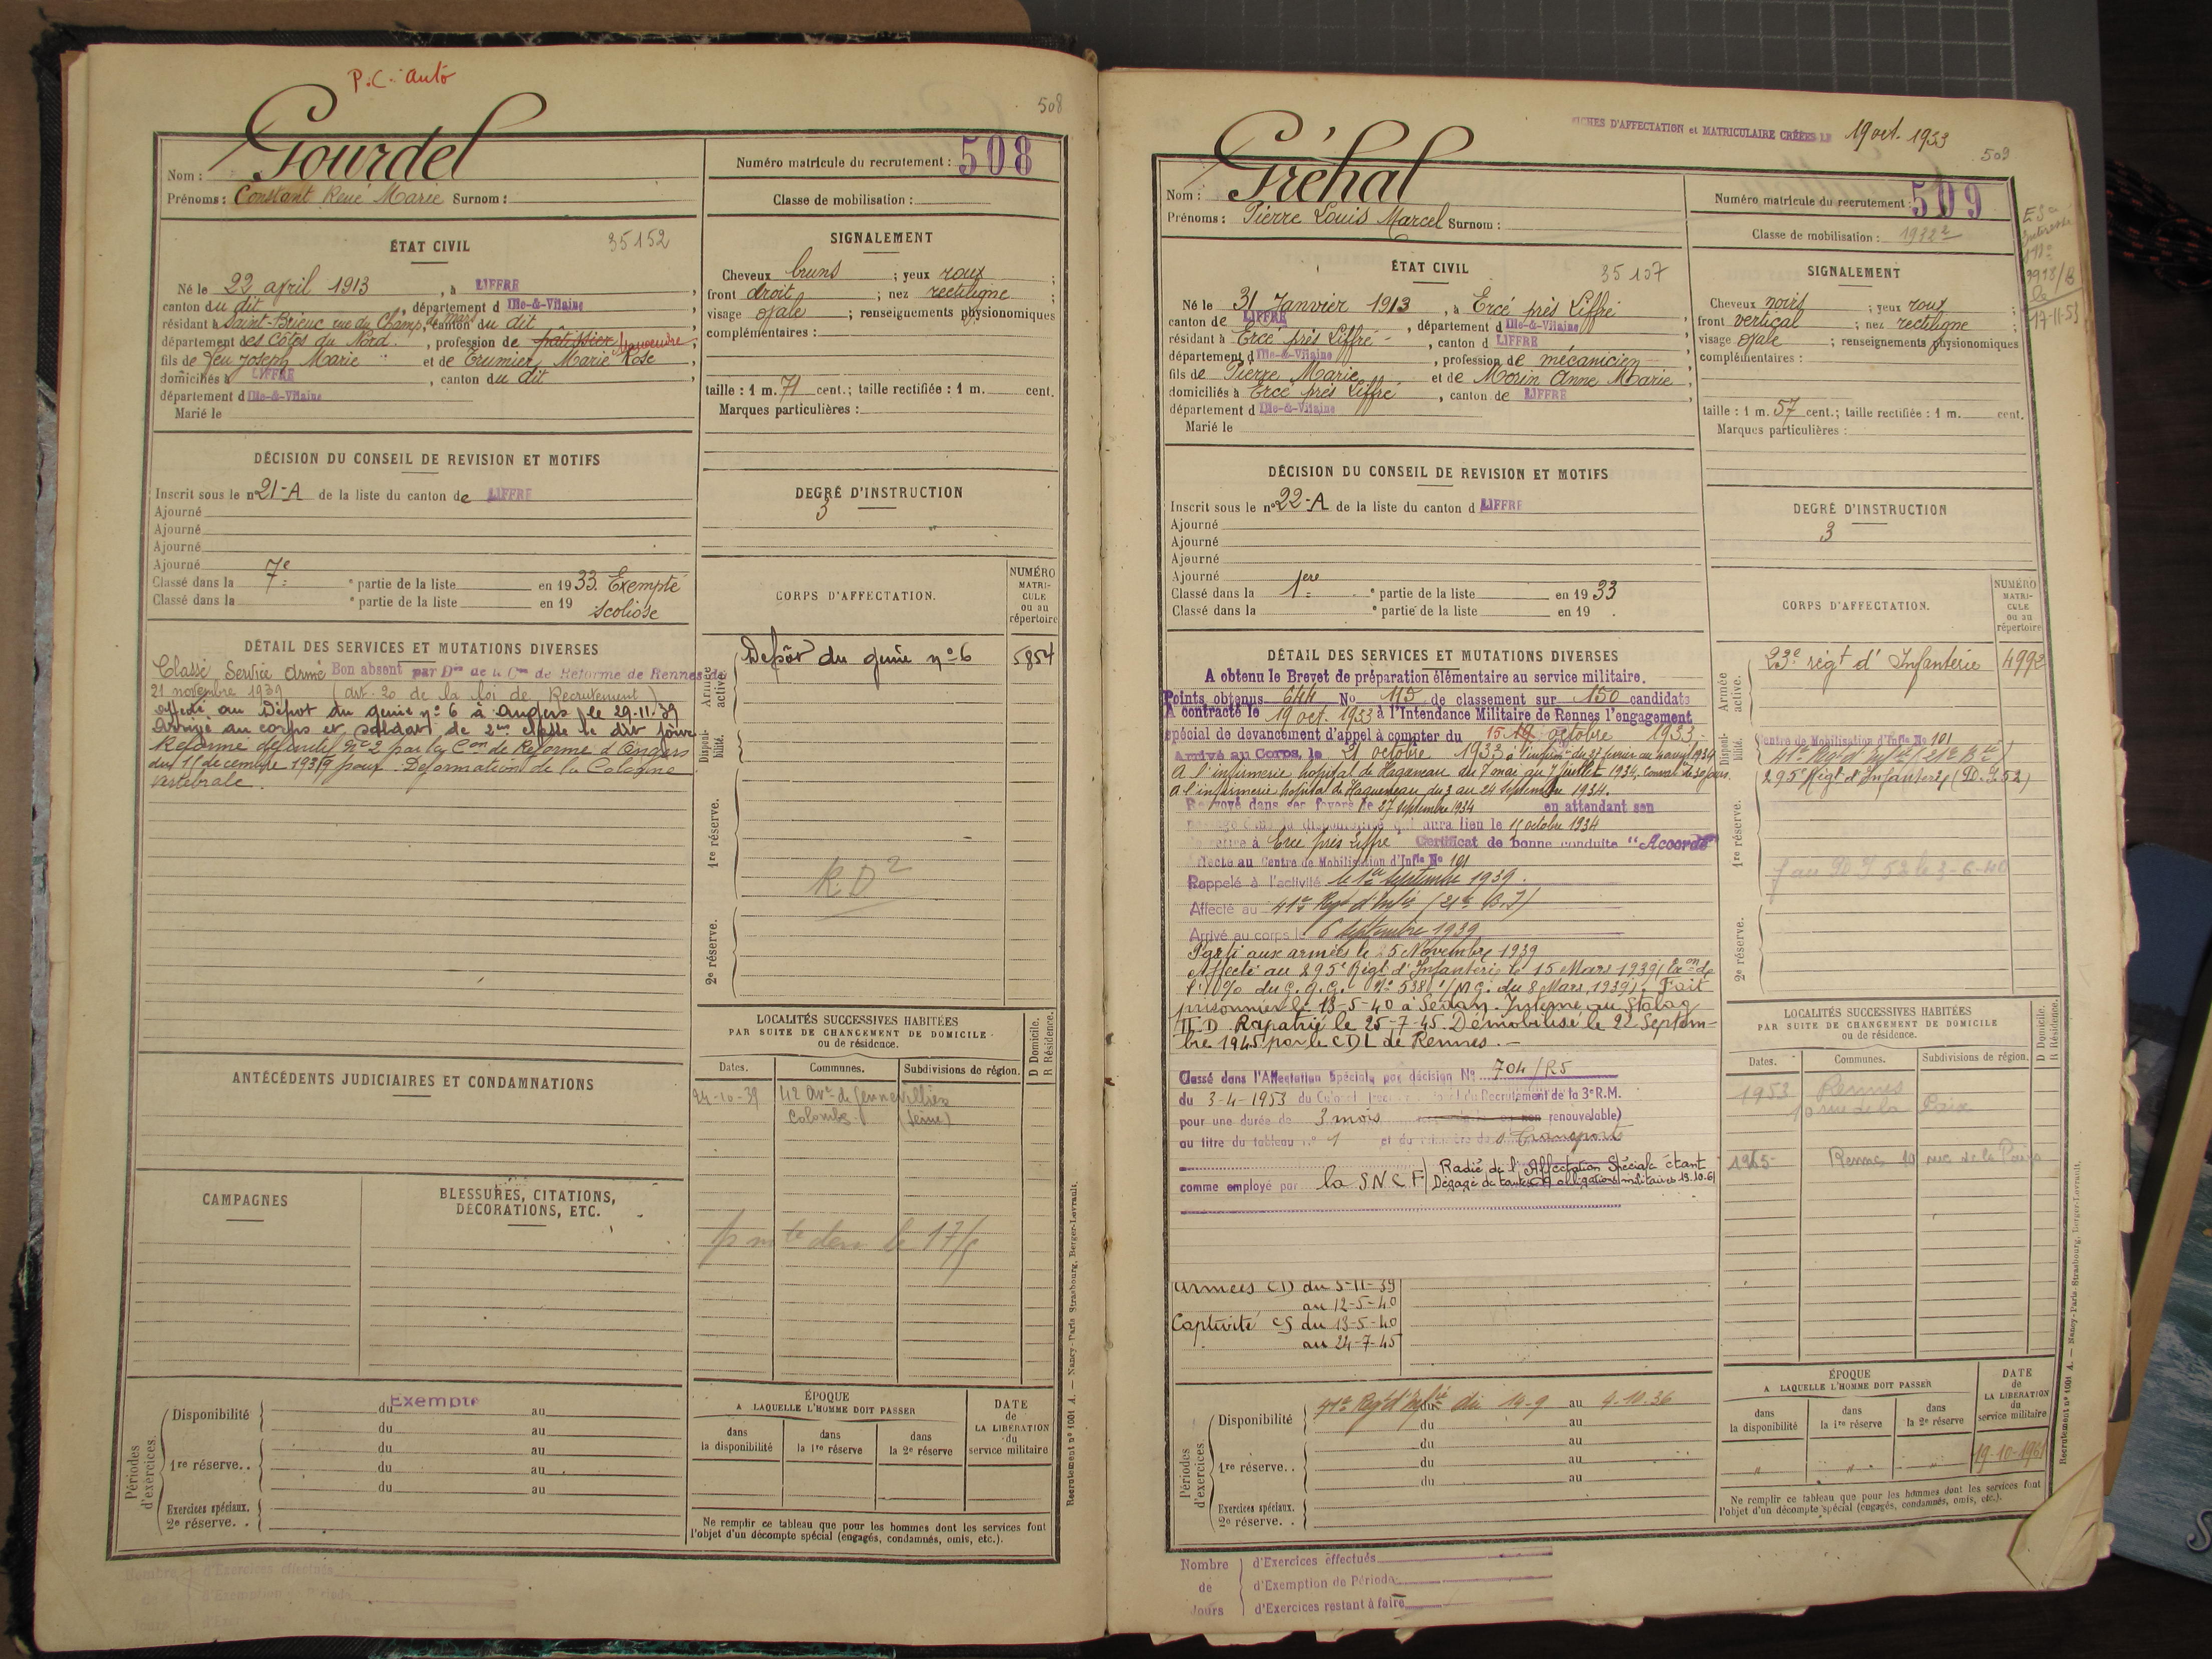 P.C. auto
508
Gourdel
Nom :
Prénoms : Constant René Marie Surnom :
Numéro matricule du recrutement : 508
Classe de mobilisation :
ÉTAT CIVIL
35152
Né le 22 avril 1913, à LIFFRÉ
canton du dit, département d Ille-&-Vilaine
résidant à Saint-Brieuc rue du Champ de mars, canton du dit
département des Côtes du Nord, profession de pâtissier Manoeuvre
fils de feu Joseph Marie et de Trumier Marie Rose
domiciliés à LIFFRÉ, canton du dit
département d Ille-&-Vilaine
Marié le
SIGNALEMENT
Cheveux bruns ; yeux roux ;
front droit ; nez rectiligne ;
visage ovale ; renseignements physionomiques
complémentaires :
taille : 1 m. 71 cent. ; taille rectifiée : 1 m. cent.
Marques particulières :
DÉCISION DU CONSEIL DE REVISION ET MOTIFS
Inscrit sous le n° 21-A de la liste du canton de LIFFRÉ
Ajourné
Ajourné
Ajourné
Ajourné
Classé dans la 7e partie de la liste en 1933 Exempté
Classé dans la e partie de la liste en 19 scoliose
DEGRÉ D'INSTRUCTION
3
CORPS D'AFFECTATION.
NUMÉRO MATRI-CULE ou au répertoire
Armée active.
Dépôt du génie n° 6 5854
Disponibilité.
1re réserve.
R.D 2
2e réserve.
DÉTAIL DES SERVICES ET MUTATIONS DIVERSES
Classé Service Armé Bon absent par Don de la Con de Réforme de Rennes du
21 novembre 1939 (art. 20 de la loi de Recrutement)
affecté au Dépôt du génie n° 6 à Angers le 29-11-39
Arrivé au corps et soldat de 2me classe le dit jour
Réformé définitif N° 2 par la Con de Réforme d'Angers
du 15 décembre 1939 pour Déformation de la Colonne
vertébrale.
ANTÉCÉDENTS JUDICIAIRES ET CONDAMNATIONS
CAMPAGNES
BLESSURES, CITATIONS, DÉCORATIONS, ETC.
LOCALITÉS SUCCESSIVES HABITÉES
PAR SUITE DE CHANGEMENT DE DOMICILE
ou de résidence.
D Domicile. R Résidence.
Dates. Communes. Subdivisions de région.
24-10-39 42 Avr de Gennevilliers
Colombes (Seine)
Périodes d'exercices.
Disponibilité Exempté du au
du au
1re réserve.. du au
du au
du au
Exercices spéciaux.
2e réserve. .
ÉPOQUE
A LAQUELLE L'HOMME DOIT PASSER
dans la disponibilité
dans la 1re réserve
dans la 2e réserve
DATE de LA LIBÉRATION du service militaire
Ne remplir ce tableau que pour les hommes dont les services font
l'objet d'un décompte spécial (engagés, condamnés, omis, etc.).
Recrutement n° 1001 A. — Nancy-Paris-Strasbourg, Berger-Levrault.
FICHES D'AFFECTATION et MATRICULAIRE CRÉÉES LE 19 oct. 1933
509
Gréhal
Nom :
Prénoms : Pierre Louis Marcel Surnom :
Numéro matricule du recrutement : 509
Classe de mobilisation : 1932 2
17-11-53
ÉTAT CIVIL
35107
Né le 31 Janvier 1913, à Ercé près Liffré
canton de LIFFRÉ, département d Ille-&-Vilaine
résidant à Ercé près Liffré, canton d LIFFRÉ
département d Ille-&-Vilaine, profession de mécanicien
fils de Pierre Marie et de Morin Anne Marie
domiciliés à Ercé près Liffré, canton de LIFFRÉ
département d Ille-&-Vilaine
Marié le
SIGNALEMENT
Cheveux noirs ; yeux roux ;
front vertical ; nez rectiligne ;
visage ovale ; renseignements physionomiques
complémentaires :
taille : 1 m. 57 cent. ; taille rectifiée : 1 m. cent.
Marques particulières :
DÉCISION DU CONSEIL DE REVISION ET MOTIFS
Inscrit sous le n° 22-A de la liste du canton d LIFFRÉ
Ajourné
Ajourné
Ajourné
Ajourné
Classé dans la 1ere partie de la liste en 1933
Classé dans la e partie de la liste en 19
DEGRÉ D'INSTRUCTION
3
CORPS D'AFFECTATION.
NUMÉRO MATRI-CULE ou au répertoire
Armée active.
23e régt d'Infanterie 4992
Disponibilité.
Centre de Mobilisation d'Infie No 101
41e Régt d'Infie (21e B
295e Régt d'Infanterie (D.I 52)
1re réserve.
f au D I 52 le 3-6-40
2e réserve.
DÉTAIL DES SERVICES ET MUTATIONS DIVERSES
A obtenu le Brevet de préparation élémentaire au service militaire.
Points obtenus 644 No 115 de classement sur 150 candidats
A contracté le 19 oct. 1933 à l'Intendance Militaire de Rennes l'engagement
spécial de devancement d'appel à compter du 15 octobre 1933.
Arrivé au Corps, le 21 octobre 1933
A l'infirmerie hôpital de Haguenau du 7 mai au 7 juillet 1934. Conval de 30 jours
A l'infirmerie hôpital de Haguenau du 3 au 24 Septembre 1934.
Renvoyé dans ses foyers le 27 septembre 1934 en attendant son
passage dans la disponibilité qui aura lieu le 15 octobre 1934
Se retire à Ercé près Liffré Certificat de bonne conduite "Accordé"
Affecté au Centre de Mobilisation d'Infie No 101
Rappelé à l'activité le 1er Septembre 1939.
Affecté au 41e Régt d'Infie (21e B.I)
Arrivé au corps le 6 Septembre 1939
Parti aux armées le 5 Novembre 1939
Affecté au 295e Régt d'Infanterie le 15 Mars 1939 (Exon de
du G.Q.G. N° 538 du 8 Mars 1939). Fait
prisonnier le 13-5-40 à Sedan. Interné au Stalag
II D Rapatrié le 25-7-45. Démobilisé le 22 Septem-
bre 1945 par le CDL de Rennes. -
Classé dans l'Affectation Spéciale par décision No 704/RS
du 3-4-1953 du Colonel du Recrutement de la 3e R.M.
pour une durée de 3 mois renouvelable)
au titre du tableau n° 1 et du des Transports
comme employé par la SNCF
Radié de l'Affectation Spéciale étant
Dégagé de toutes obligations militaires 19.10.61
Armées CD du 5-11-39
au 12-5-40
Captivité CS du 13-5-40
au 24-7-45
LOCALITÉS SUCCESSIVES HABITÉES
PAR SUITE DE CHANGEMENT DE DOMICILE
ou de résidence.
D Domicile. R Résidence.
Dates. Communes. Subdivisions de région.
1953 Rennes
10 rue de la Paix
1965 Rennes 10 rue de la Paix
Périodes d'exercices.
Disponibilité 41e Régt d'Infie du 14-9 au 4-10-36
du au
1re réserve.. du au
du au
du au
Exercices spéciaux.
2e réserve. .
ÉPOQUE
A LAQUELLE L'HOMME DOIT PASSER
dans la disponibilité
dans la 1re réserve
dans la 2e réserve
DATE de LA LIBÉRATION du service militaire
" " " 19-10-1961
Ne remplir ce tableau que pour les hommes dont les services font
l'objet d'un décompte spécial (engagés, condamnés, omis, etc.).
Recrutement n° 1001 A. — Nancy-Paris-Strasbourg, Berger-Levrault.
Nombre de Jours
d'Exercices effectués
d'Exemption de Période
d'Exercices restant à faire